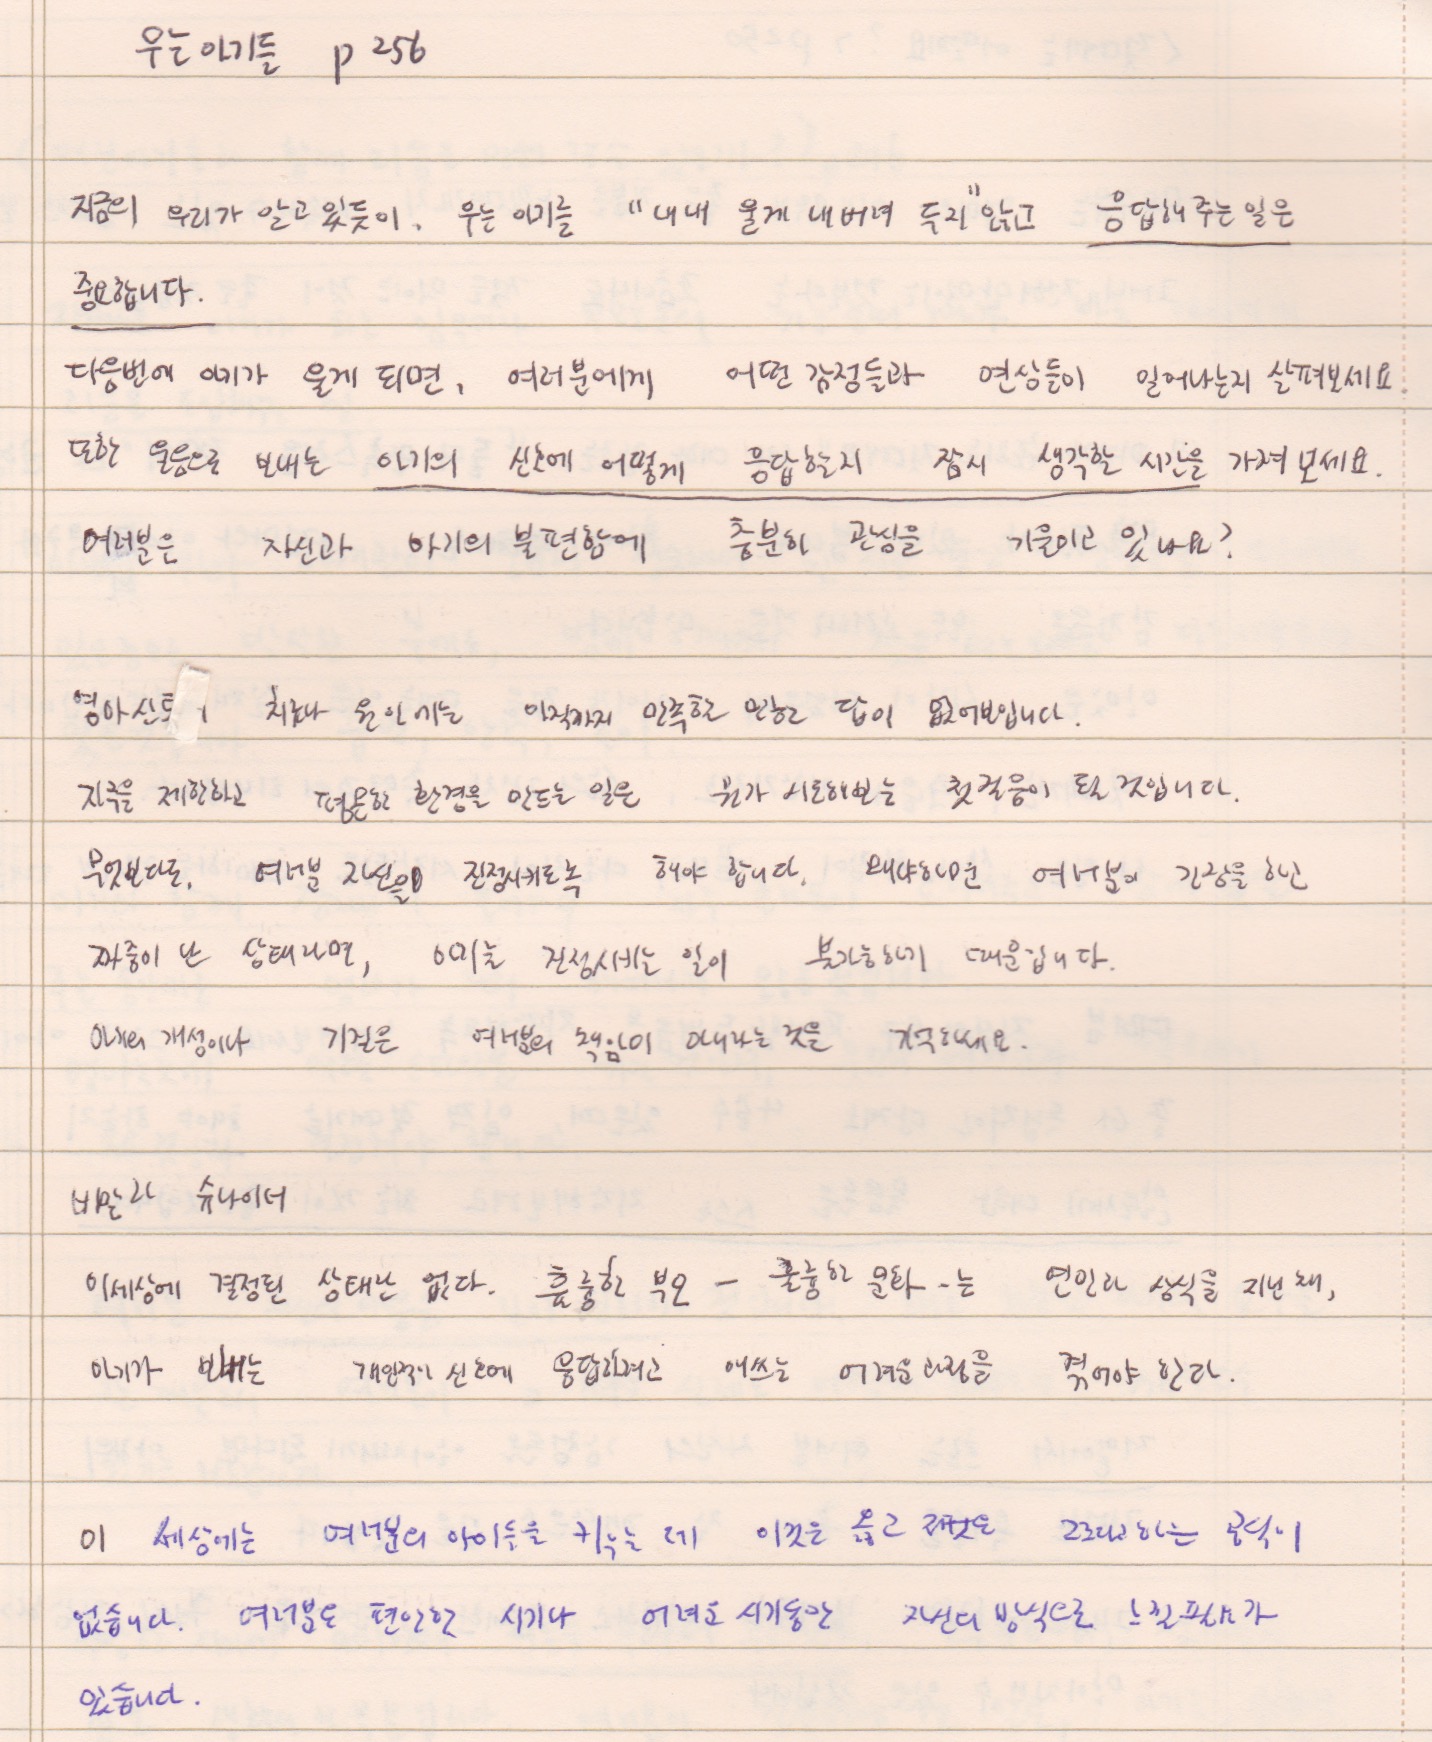 우는 아기들 p 256
지금의 우리가 알고 있듯이, 우는 아기를 "내내 울게 내버려 두지" 않고 응답해 주는 일은
중요합니다.
다음번에 아기가 울게 되면, 여러분에게 어떤 감정들과 연상들이 일어나는지 살펴보세요
또한 울음으로 보내는 아기의 신호에 어떻게 응답할지 잠시 생각할 시간을 가져보세요.
여러분은 자신과 아기의 불편함에 충분히 관심을 기울이고 있나요?
영아산통 치료나 원인에는 아직까지 만족할 만한 답이 없어보입니다.
자극을 제한하고 평온한 환경을 만드는 일은 뭔가 시도해보는 첫걸음이 될 것입니다.
무엇보다도, 여러분 자신을 진정시키도록 해야 합니다. 왜냐하면 여러분이 긴장을 하고
짜증이 난 상태라면, 아기를 진정시키는 일이 불가능하기 때문입니다.
아기의 개성이나 기질은 여러분의 책임이 아니라는 것을 기억하세요.
비말라 슈나이더
이세상에 결정된 상태란 없다. 훌륭한 부모 - 훌륭한 문화 - 는 연민과 상식을 지닌 채,
아기가 보내는 개인적인 신호에 응답하려고 애쓰는 어려운 과정을 겪어야 한다.
이 세상에는 여러분의 아이들을 키우는 데 이것은 옳고 저것도 그르다고 하는 공식이
없습니다. 여러분도 편안한 시기나 어려운 시기동안 자신의 방식으로 느낄 필요가
있습니다.